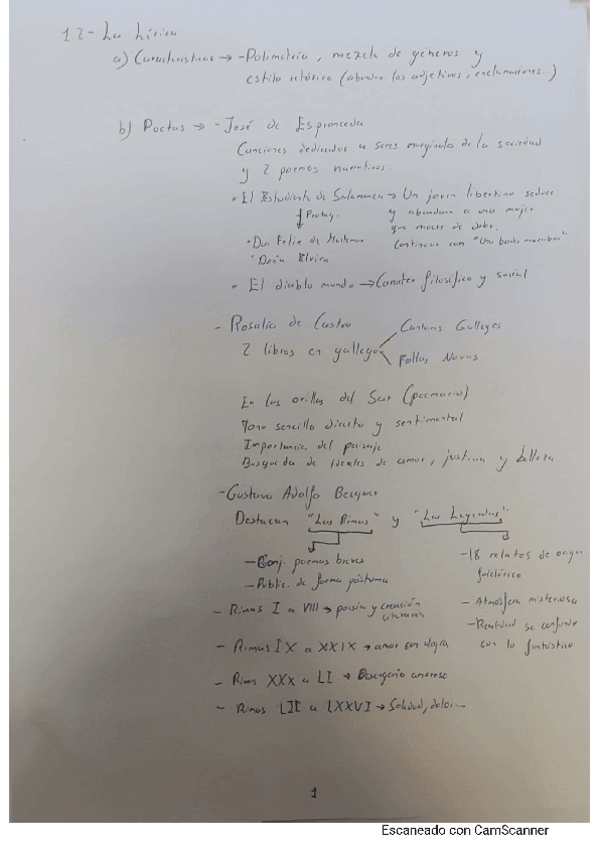 12- La Lírica
a) Características → - Polimetría, mezcla de géneros y
estilo retórico (abundan los adjetivos, exclamaciones..)
b) Poetas → - José de Espronceda
Canciones dedicadas a seres marginales de la sociedad
y 2 poemas narrativos:
• El Estudiante de Salamanca → Un joven libertino seduce
↓ Protag. y abandona a una mujer
que muere de dolor.
• Don Felix de
• Doña Elvira
Continua con "Una boda macabra"
• El diablo mundo → Caracter filosófico y social
- Rosalía de Castro
2 libros en gallego
Cantares Gallegos
Follas Novas
En las orillas del Sar (poemario)
Tono sencillo directo y sentimental
Importancia del paisaje
Busqueda de ideales de amor, justicia y belleza
- Gustavo Adolfo Becquer
Destacan "Las Rimas" y "Las Leyendas"
- Conj. poemas breves
- Public. de forma póstuma
- 18 relatos de origen
folclórico
- Atmosfera misteriosa
- Realidad se confunde
con lo fantástico
- Rimas I a VIII → poesía y creación
literaria
- Rimas IX a XXIX → amor con alegría
- Rimas XXX a LI → Desengaño amoroso
- Rimas LII a LXXVI → Soledad, dolor...
1
Escaneado con CamScanner